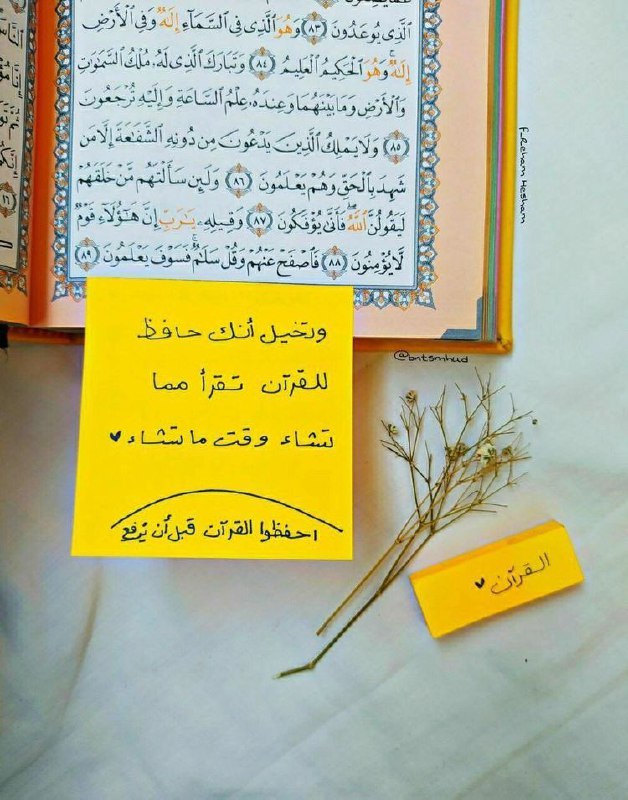 ٱلَّذِى يُوعَدُونَ ﴿٨٣﴾ وَهُوَ ٱلَّذِى فِى ٱلسَّمَآءِ إِلَٰهٌ وَفِى ٱلْأَرْضِ
إِلَٰهٌ وَهُوَ ٱلْحَكِيمُ ٱلْعَلِيمُ ﴿٨٤﴾ وَتَبَارَكَ ٱلَّذِى لَهُۥ مُلْكُ ٱلسَّمَٰوَٰتِ
وَٱلْأَرْضِ وَمَا بَيْنَهُمَا وَعِندَهُۥ عِلْمُ ٱلسَّاعَةِ وَإِلَيْهِ تُرْجَعُونَ
﴿٨٥﴾ وَلَا يَمْلِكُ ٱلَّذِينَ يَدْعُونَ مِن دُونِهِ ٱلشَّفَٰعَةَ إِلَّا مَن
شَهِدَ بِٱلْحَقِّ وَهُمْ يَعْلَمُونَ ﴿٨٦﴾ وَلَئِن سَأَلْتَهُم مَّنْ خَلَقَهُمْ
لَيَقُولُنَّ ٱللَّهُ فَأَنَّىٰ يُؤْفَكُونَ ﴿٨٧﴾ وَقِيلِهِۦ يَٰرَبِّ إِنَّ هَٰٓؤُلَآءِ قَوْمٌ
لَّا يُؤْمِنُونَ ﴿٨٨﴾ فَٱصْفَحْ عَنْهُمْ وَقُلْ سَلَٰمٌ فَسَوْفَ يَعْلَمُونَ ﴿٨٩﴾
F_Reham Hesham
@bntsmhud
وتخيل أنك حافظ
للقرآن تقرأ مما
تشاء وقت ما تشاء ♥
احفظوا القرآن قبل أن يرفع
القرآن ♥